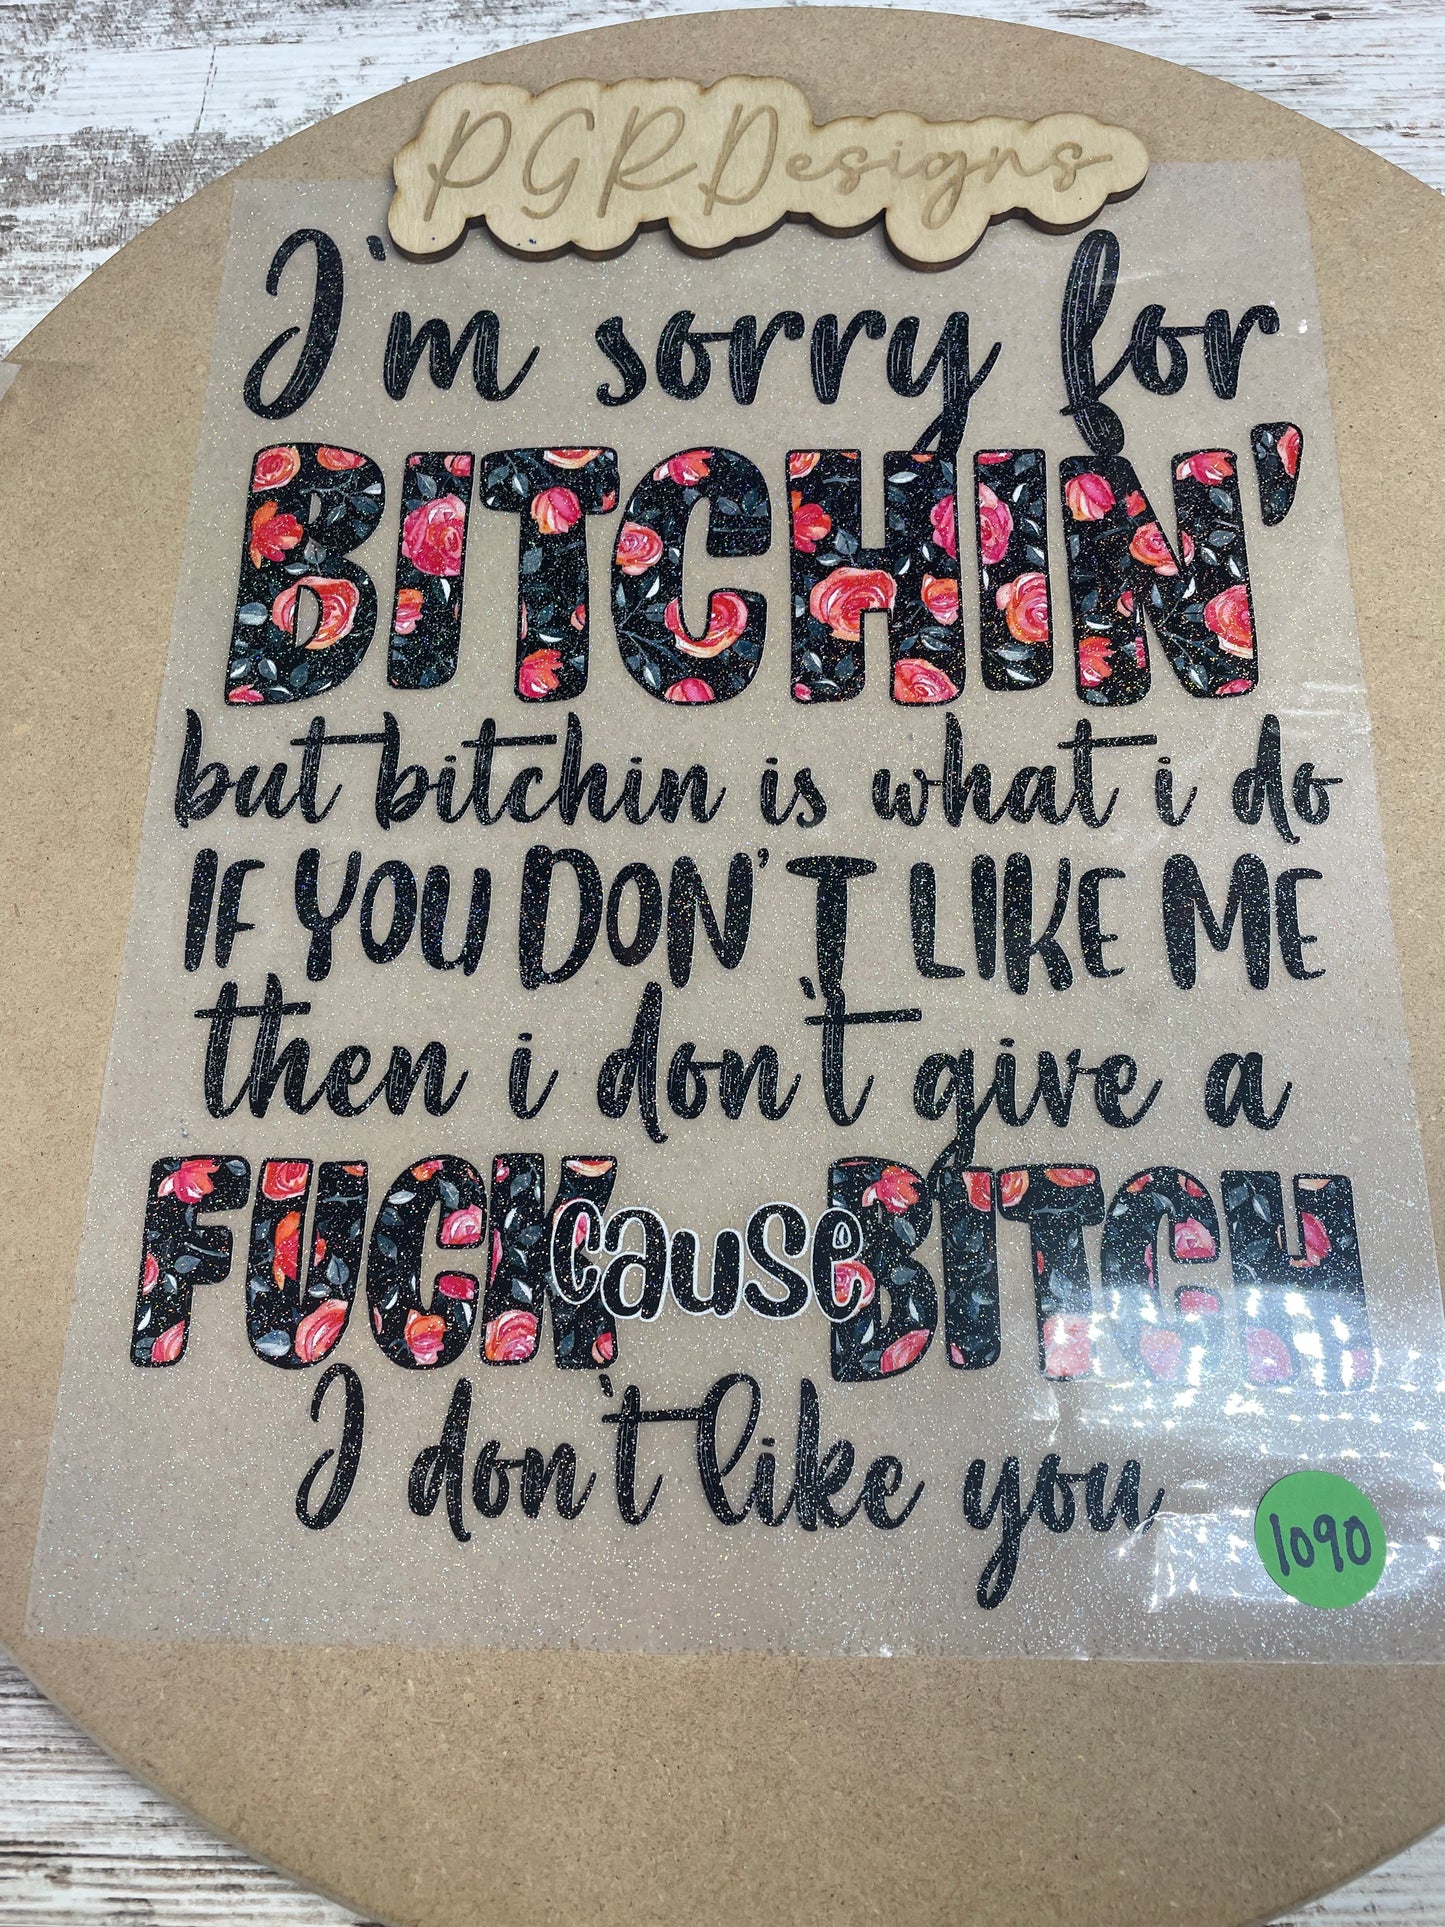 PGRDesigns
I'm sorry for
BITCHIN'
but bitchin is what i do
IF YOU DON'T LIKE ME
then i don't give a
FUCK cause BITCH
I don't like you
1090